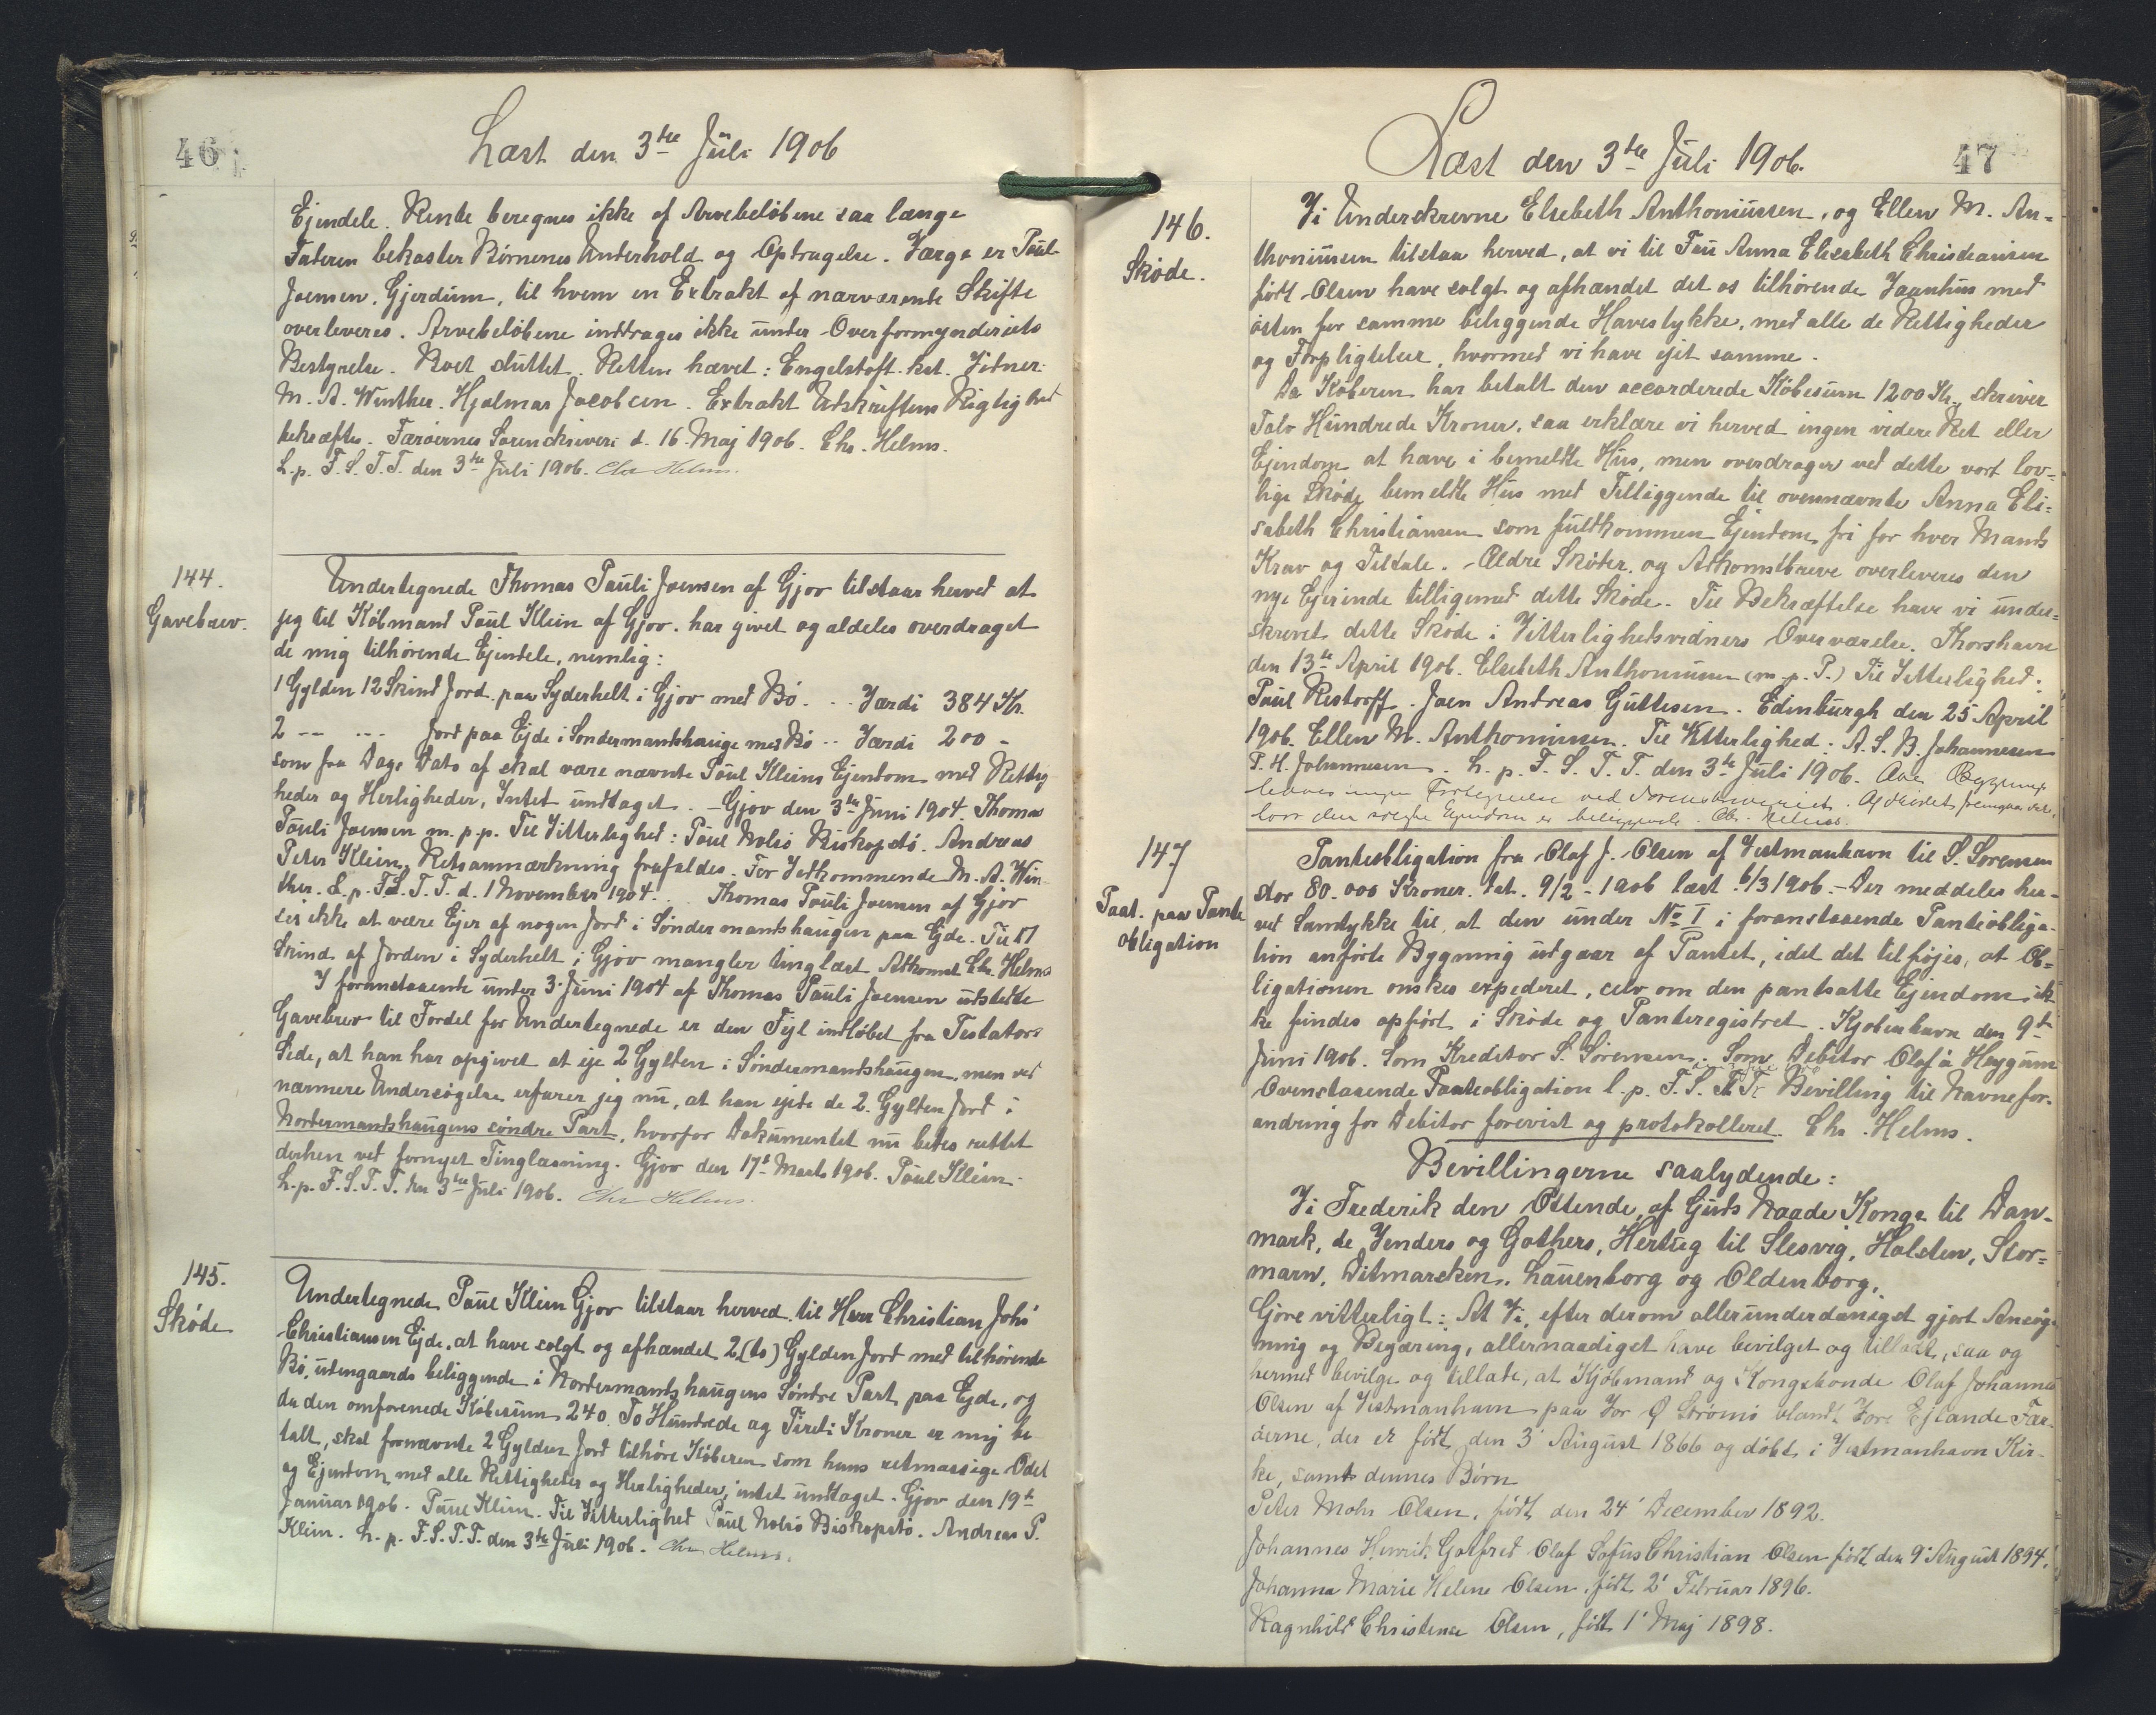 46
Læst den 3die Juli 1906
Ejendele. Rente beregnes ikke af Arvebeløbene saa længe
Faderen bekoster Børnenes Underhold og Optragelse. Værge er Poul
Joensen, Gjerdum, til hvem en Extrakt af nærværende Skifte
overleveres. Arvebeløbene inddrages ikke under Overformynderiets
Bestyrelse. Boet sluttet. Retten hævet: Engelstoft. kst. Vidner:
M. A. Winther. Hjalmar Jacobsen. Extrakt Udskriftens Rigtighed
bekræftes. Færøernes Sorenskriveri d. 16. Maj 1906. Chr. Helms.
L. p. F. S. T. T. den 3die Juli 1906. Chr Helms.
144.
Gavebrev.
Undertegnede Thomas Pauli Joensen af Gjov tilstaar herved at
jeg til Købmand Poul Klein af Gjov. har givet og aldeles overdraget
de mig tilhørende Ejendele, nemlig:
1 Gylden 12 Skind Jord paa Syderhelt i Gjov med Bø. .. Værdi 384 Kr.
2 -- --- Jord paa Ejde i Søndermandshauge med Bø .. Værdi 200 -
som fra Dags Dato af skal være nævnte Poul Kleins Ejendom med Rettig
heder og Herligheder, Intet undtaget. - Gjov den 3die Juni 1904. Thomas
Pauli Joensen m. p. p. Til Vitterlighed: Poul Nolsø Biskopstø. Andreas
Peter Klein. Retsanmærkning frafaldes. For Vedkommende M. A. Win
ther. L. p. F. S. T. T. d. 1 November 1904. . . Thomas Pauli Joensen af Gjov
ses ikke at være Ejer af nogen Jord i Søndermandshaugen paa Ejde. Til 17
Skind af Jorden i Syderhelt i Gjov mangler tinglæst Adkomst Chr. Helms
I foranstaaende under 3' Juni 1904 af Thomas Pauli Joensen udstedte
Gavebrev til Fordel for Undertegnede er den Fejl indløbet fra Testators
Side, at han har opgivet at eje 2 Gylden i Søndermandshaugen, men ved
nærmere Undersøgelse erfarer jeg nu, at han ejede de 2. Gylden Jord i
Nordermandshaugens søndre Part, hvorfor Dokumentet nu bedes rettet
derhen ved fornyet Tinglæsning. Gjov den 17d Marts 1906. Poul Klein.
L. p. F. S. T. T. den 3die Juli 1906. Chr Helms.
145.
Skøde
Undertegnede Poul Klein Gjov tilstaar herved til Herr Christian Johs
Christiansen Ejde, at have solgt og afhændet 2 (to) Gylden Jord med tilhørende
Bø, udengaards beliggende i Nordermandshaugens Søndre Part paa Ejde, og
da den omforenede Købesum 240 To Hundrede og Fireti Kroner er mig be
talt, skal fornævnte 2 Gylden Jord tilhøre Køberen som hans retmæssige Odel
og Ejendom med alle Rettigheder og Herligheder, intet undtaget. Gjov den 19d
Januar 1906. Poul Klein. Til Vitterlighed Poul Nolsø Biskopstø. Andreas P.
Klein. L. p. F. S. T. T. den 3die Juli 1906. Chr Helms.
47
Læst den 3die Juli 1906.
146.
Skøde.
Vi Underskrevne Elsebeth Anthoniussen, og Ellen M. An=
thoniusen tilstaa herved, at vi til Fru Anna Elisabeth Christiansen
født Olsen have solgt og afhændet det os tilhørende Vaanhus med
østen for samme beliggende Havestykke, med alle de Rettigheder
og Forpligtelser, hvormed vi have ejet samme.
Da Køberen har betalt den accorderede Købesum 1200 Kr., skriver
Tolv Hundrede Kroner, saa erklære vi herved ingen videre Ret eller
Ejendom at have i bemeldte Hus, men overdrager ved dette vort lov=
lige Skøde bemeldte Hus med Tilliggende til ovennævnte Anna Eli=
sabeth Christiansen som fuldkommen Ejendom fri for hver Mands
Krav og Tiltale. - Ældre Skøder og Adkomstbreve overleveres den
nye Ejerinde tilligemed dette Skøde. Til Bekræftelse have vi under=
skrevet dette Skøde i Vitterlighedsvidners Overværelse. Thorshavn
den 13de April 1906. Elsebeth Anthoniussen (m. p. P.) Til Vitterlighed:
Poul Restorff. Joen Andreas Guttesen. Edinburgh den 25 April
1906. Ellen M. Anthoniusen. Til Vitterlighed: A. S. B. Johannesen
P. H. Johannesen. L. p. F. S. T. T. den 3die Juli 1906. Bygning
haves ingen Fortegnelse ved Sorenskriveriet. Af Skødet fremgaar ikke,
hvor den solgte Ejendom er beliggende. Chr. Helms.
147
Paat. paa Pante
obligation
Panteobligation fra Olaf J. Olsen af Vestmanhavn til S. Sørensen
stor 80.000 Kroner. dat. 9/2 - 1906 læst 6/3 1906. - Der meddeles her-
ved Samtykke til, at den under No I i foranstaaende Panteobliga-
tion anførte Bygning udgaar af Pantet, idet det tilføjes, at Ob=
ligationen ønskes expederet, selv om den pantsatte Ejendom ik
ke findes opført i Skøde og Panteregistret. Kjøbenhavn den 9de
Juni 1906. Som Kreditor S. Sørensen. Som Debitor Olaf á Heygum
Ovenstaaende Panteobligation l. p. F. S. T. T. Bevilling til Navnefor-
andring for Debitor forevist og protokolleret. Chr. Helms.
Bevillingerne saalydende:
Vi Frederik den Ottende, af Guds Naade Konge til Dan-
mark, de Venders og Gothers, Hertug til Slesvig, Holsten, Stor=
marn, Ditmarsken, Lauenborg og Oldenborg,
Gjøre vitterligt: At Vi, efter derom allerunderdanigst gjort Ansøg-
ning og Begæring, allernaadigst have bevilget og tilladt, saa og
hermed bevilge og tillade, at Kjøbmand og Kongsbonde Olaf Johannes
Olsen af Vestmanhavn paa Vor Ø Strømø blandt Vore Ejlande Fær-
øerne, der er født den 3' August 1866 og døbt i Vestmanhavn Kir-
ke, samt dennes Børn
Peter Mohr Olsen, født den 24' December 1892.
Johannes Henrik Gotfred Olaf Sofus Christian Olsen født den 9' August 1894.
Johanna Marie Helene Olsen, født 2' Februar 1896.
Ragnhild Christense Olsen, født 1' Maj 1898.